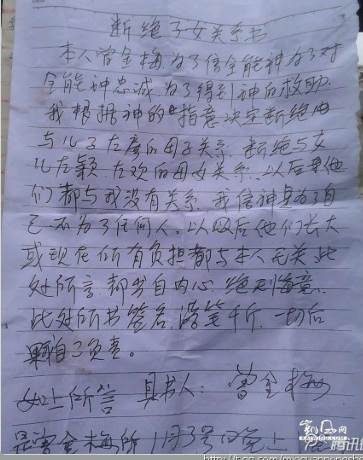 断绝子女关系书
本人曾金梅为了信全能神为了对
全能神忠诚为了得到神的救助
我根据神的指意决定断绝母
与儿子左彦的母子关系.断绝与女
儿左颖左欢的母女关系.以后其他
们都与我没有关系.我信神是为了自
己不为了任何人.以后他们长大
或现在所有负担都与本人无关此
处所言都出自内心,绝无悔意.
此处所书签名落笔千斤.一切后
果自了负责.
以上所言 具书人:曾金梅
是曾金梅所 1月3号晚上
腾讯